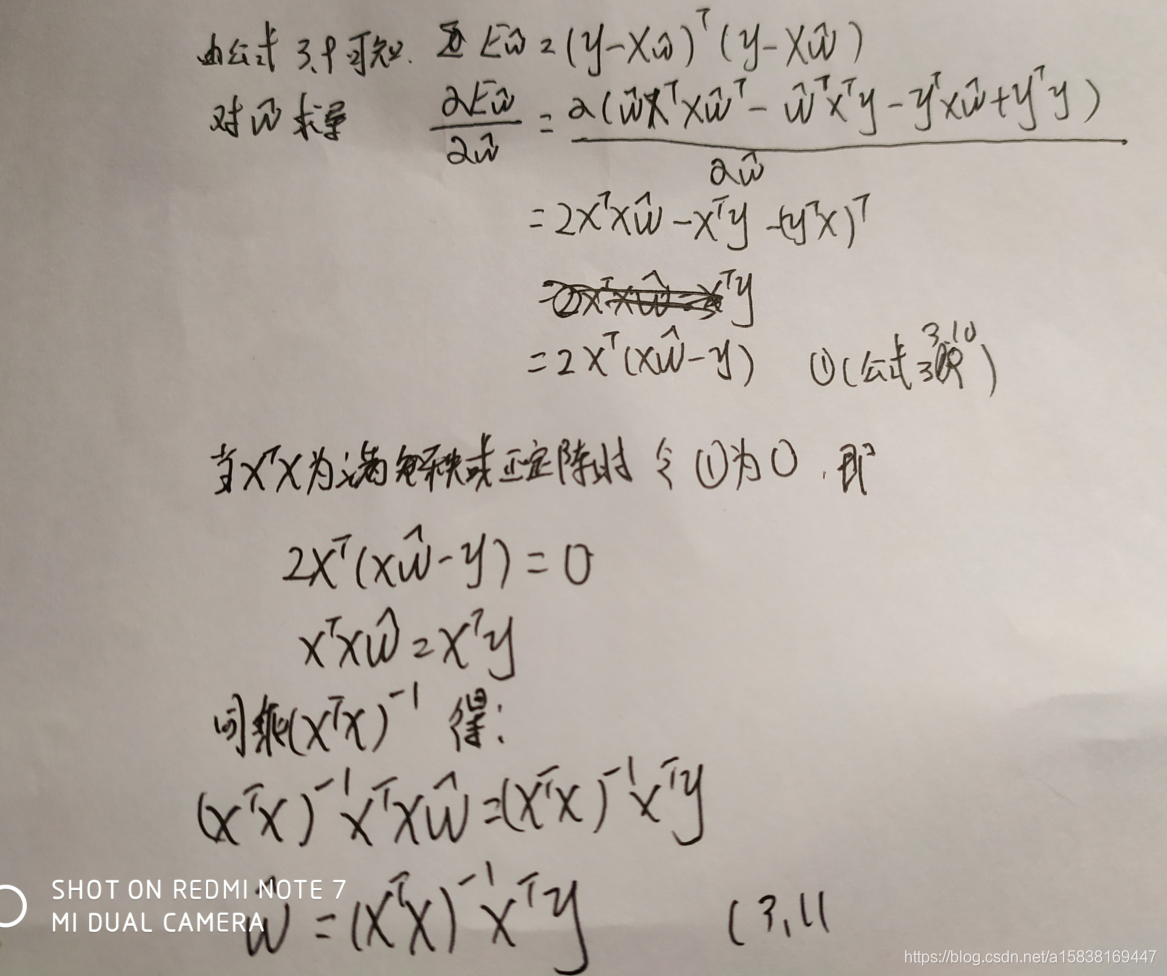 由公式3.9可知 E_ŵ = (y-Xŵ)ᵀ(y-Xŵ)
对ŵ求导 ∂E_ŵ/∂ŵ = ∂(ŵXᵀXŵᵀ - ŵᵀXᵀy - yᵀXŵ + yᵀy)/∂ŵ
= 2XᵀXŵ - Xᵀy - (yᵀX)ᵀ
= 2Xᵀ(Xŵ-y) ①(公式3.10)
当XᵀX为满秩或正定阵时 令①为0,即
2Xᵀ(Xŵ-y) = 0
XᵀXŵ = Xᵀy
同乘(XᵀX)⁻¹ 得:
(XᵀX)⁻¹XᵀXŵ = (XᵀX)⁻¹Xᵀy
ŵ = (XᵀX)⁻¹Xᵀy (3.11
SHOT ON REDMI NOTE 7
MI DUAL CAMERA
https://blog.csdn.net/a15838169447